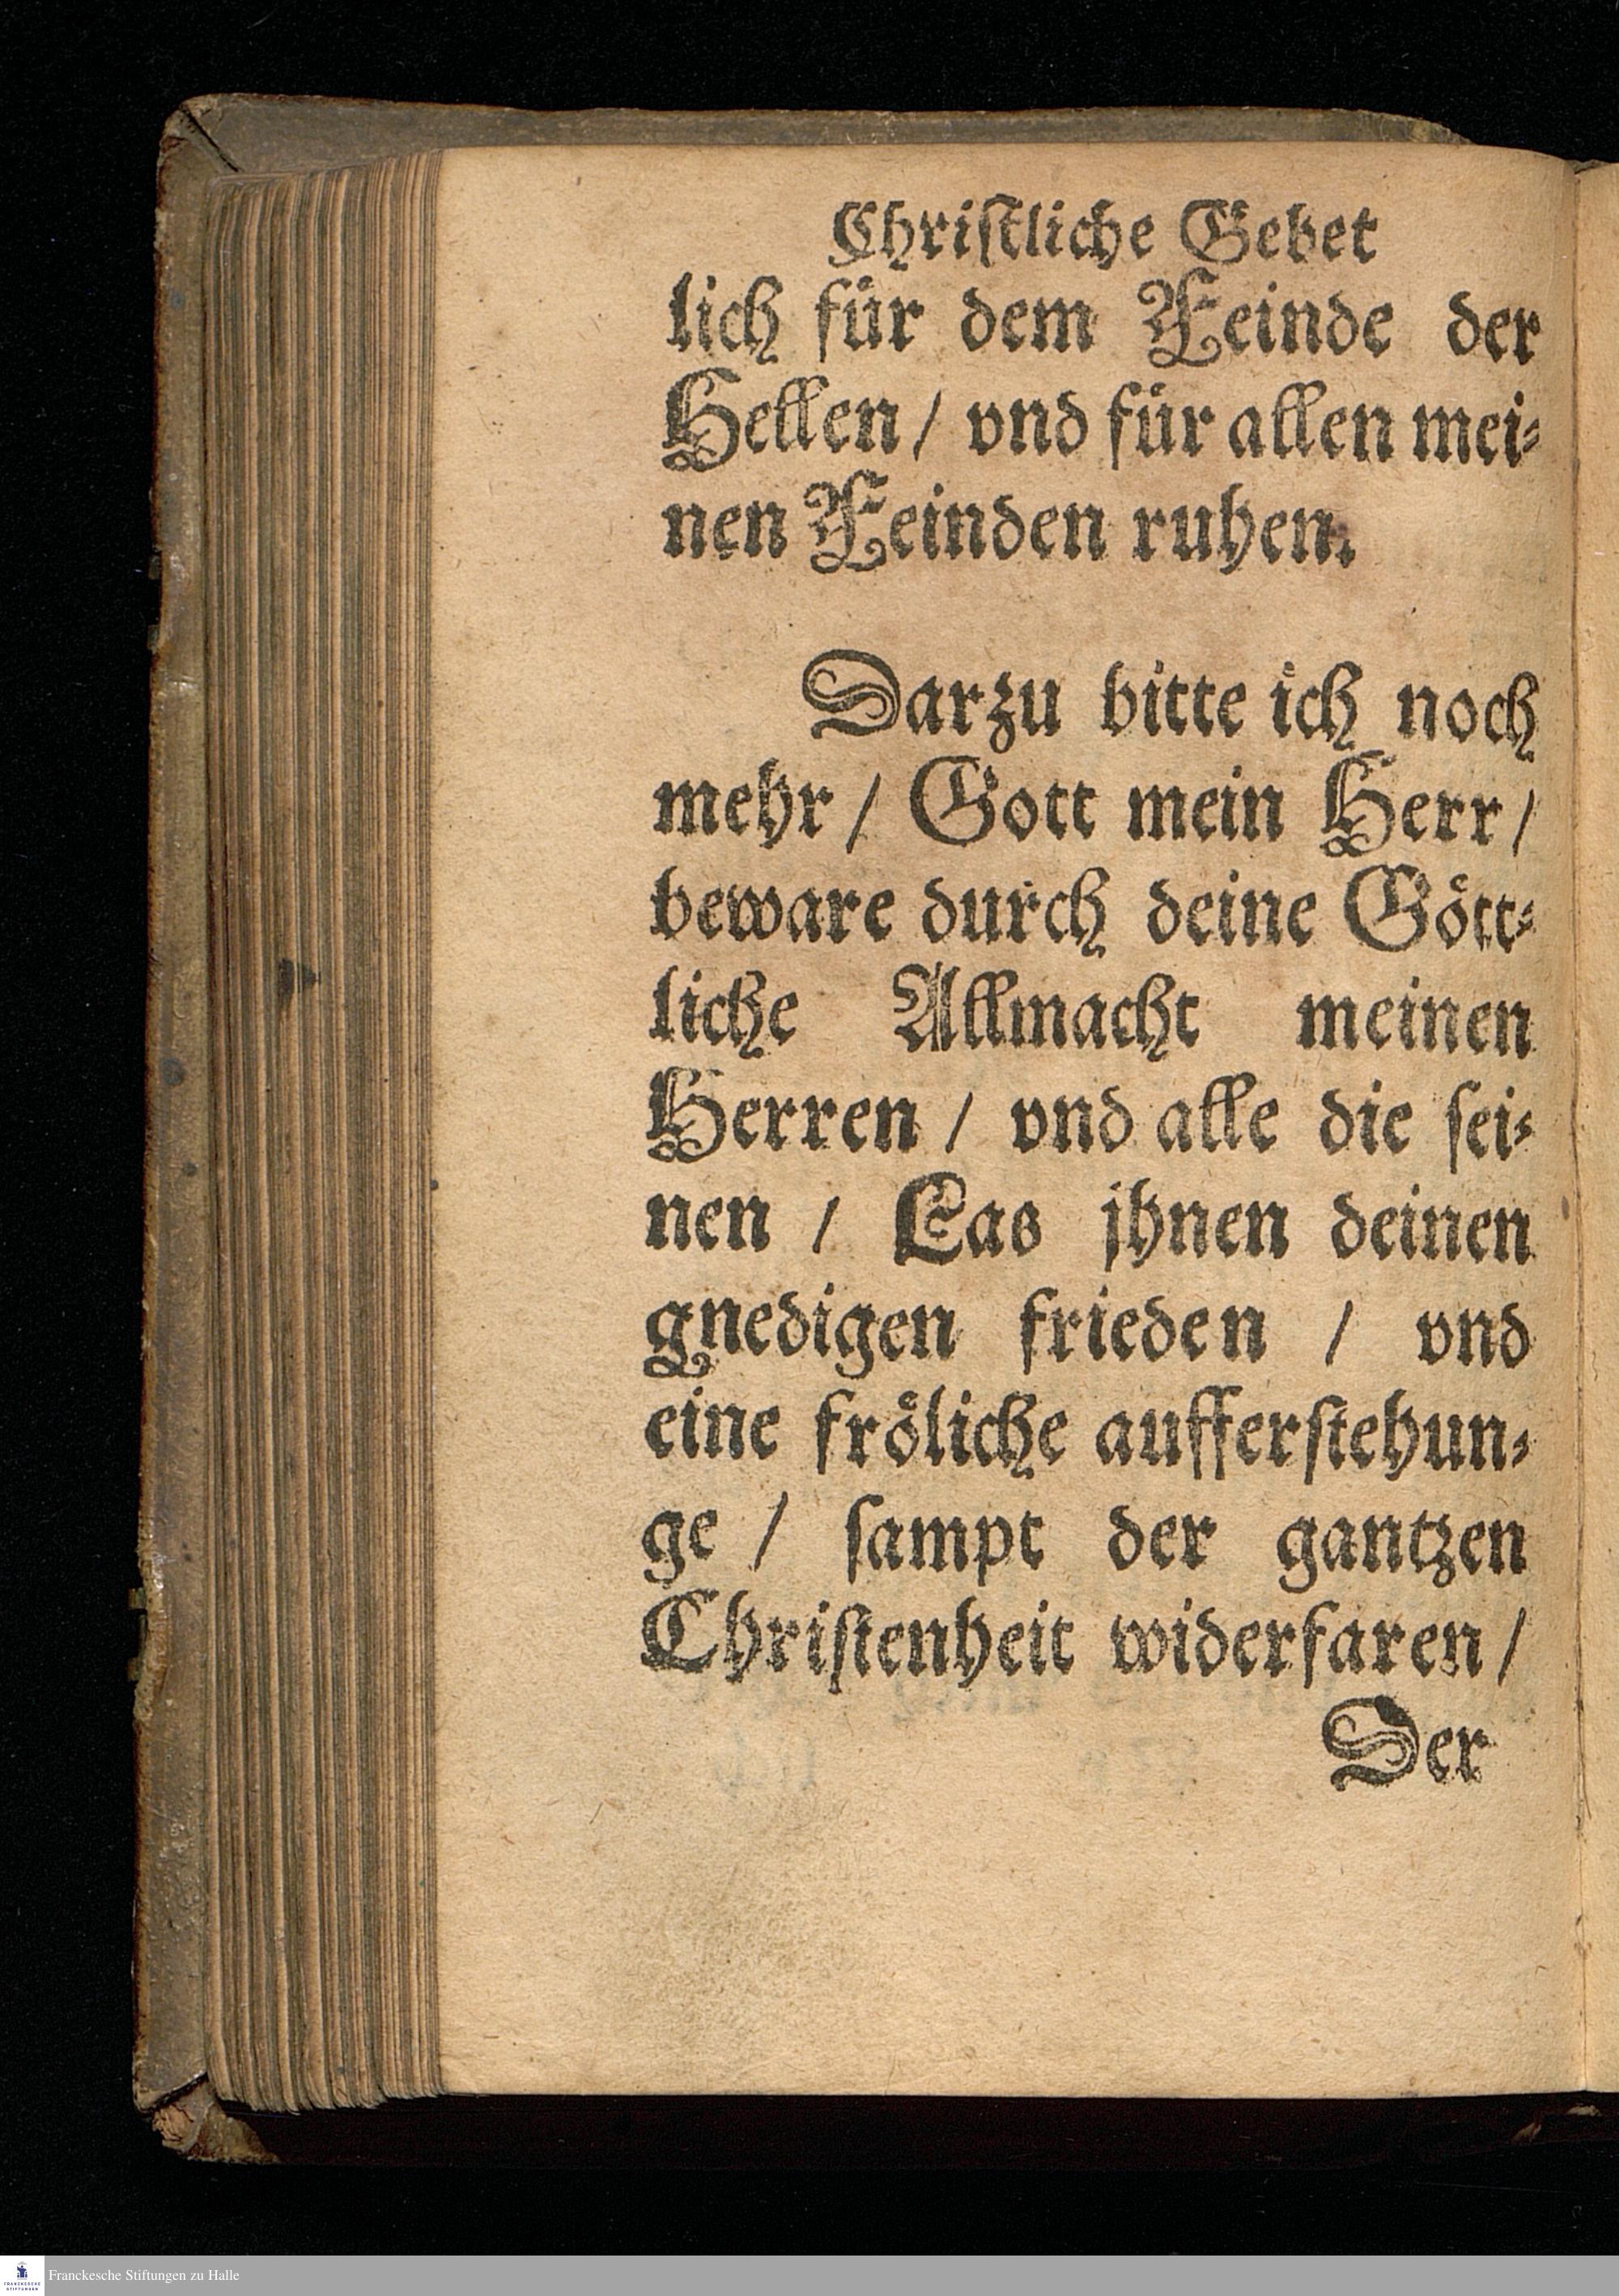 Christliche Gebet
lich für dem Feinde der
Hellen / vnd für allen mei⸗
nen Feinden ruhen.
Darzu bitte ich noch
mehr / Gott mein Herr /
beware durch deine Gött⸗
liche Allmacht meinen
Herren / vnd alle die sei⸗
nen / Las jhnen deinen
gnedigen frieden / vnd
eine fröliche aufferstehun⸗
ge / sampt der gantzen
Christenheit widerfaren /
Der
FRANCKESCHE
STIFTUNGEN
Franckesche Stiftungen zu Halle